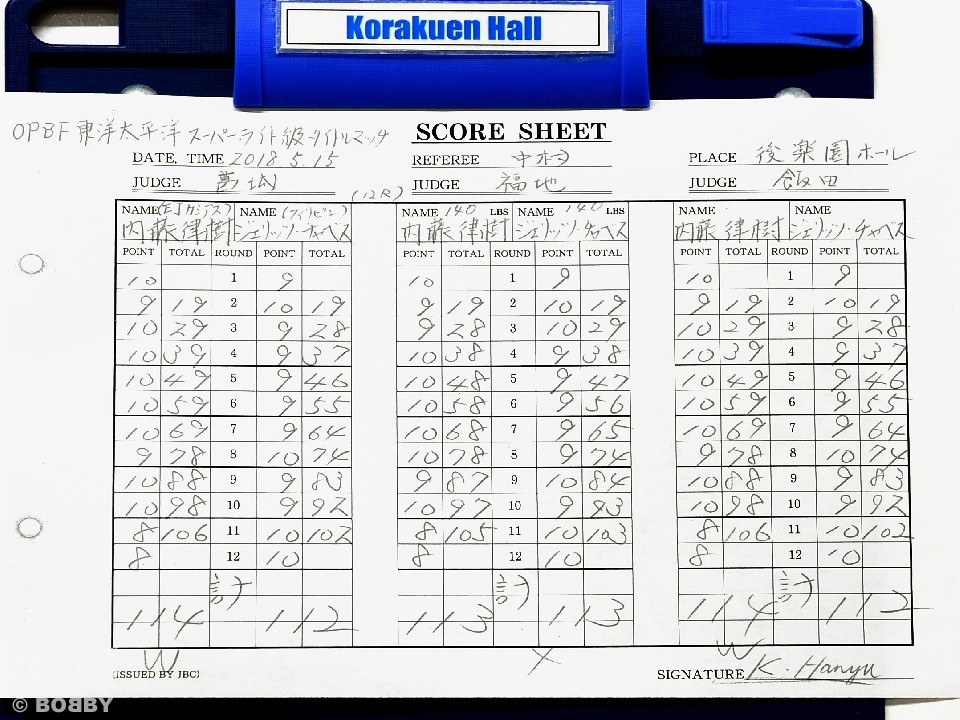 Korakuen Hall
OPBF 東洋太平洋スーパーライト級タイトルマッチ SCORE SHEET
DATE, TIME 2018.5.15 REFEREE 中村 PLACE 後楽園ホール
JUDGE 葛城 (12R) JUDGE 福地 JUDGE 飯田
NAME NAME (フィリピン) NAME 140 LBS NAME 140 LBS NAME NAME
内藤律樹 ジェリッツ・チャベス 内藤律樹 ジェリッツ・チャベス 内藤律樹 ジェリッツ・チャベス
POINT TOTAL ROUND POINT TOTAL POINT TOTAL ROUND POINT TOTAL POINT TOTAL ROUND POINT TOTAL
10 1 9 10 1 9 10 1 9
9 19 2 10 19 9 19 2 10 19 9 19 2 10 19
10 29 3 9 28 9 28 3 10 29 10 29 3 9 28
10 39 4 9 37 10 38 4 9 38 10 39 4 9 37
10 49 5 9 46 10 48 5 9 47 10 49 5 9 46
10 59 6 9 55 10 58 6 9 56 10 59 6 9 55
10 69 7 9 64 10 68 7 9 65 10 69 7 9 64
9 78 8 10 74 10 78 8 9 74 9 78 8 10 74
10 88 9 9 83 9 87 9 10 84 10 88 9 9 83
10 98 10 9 92 10 97 10 9 93 10 98 10 9 92
8 106 11 10 102 8 105 11 10 103 8 106 11 10 102
8 12 10 8 12 10 8 12 10
計 計 計
114 112 113 113 114 112
W X W
(ISSUED BY JBC) SIGNATURE K. Hanyu
© BOBBY